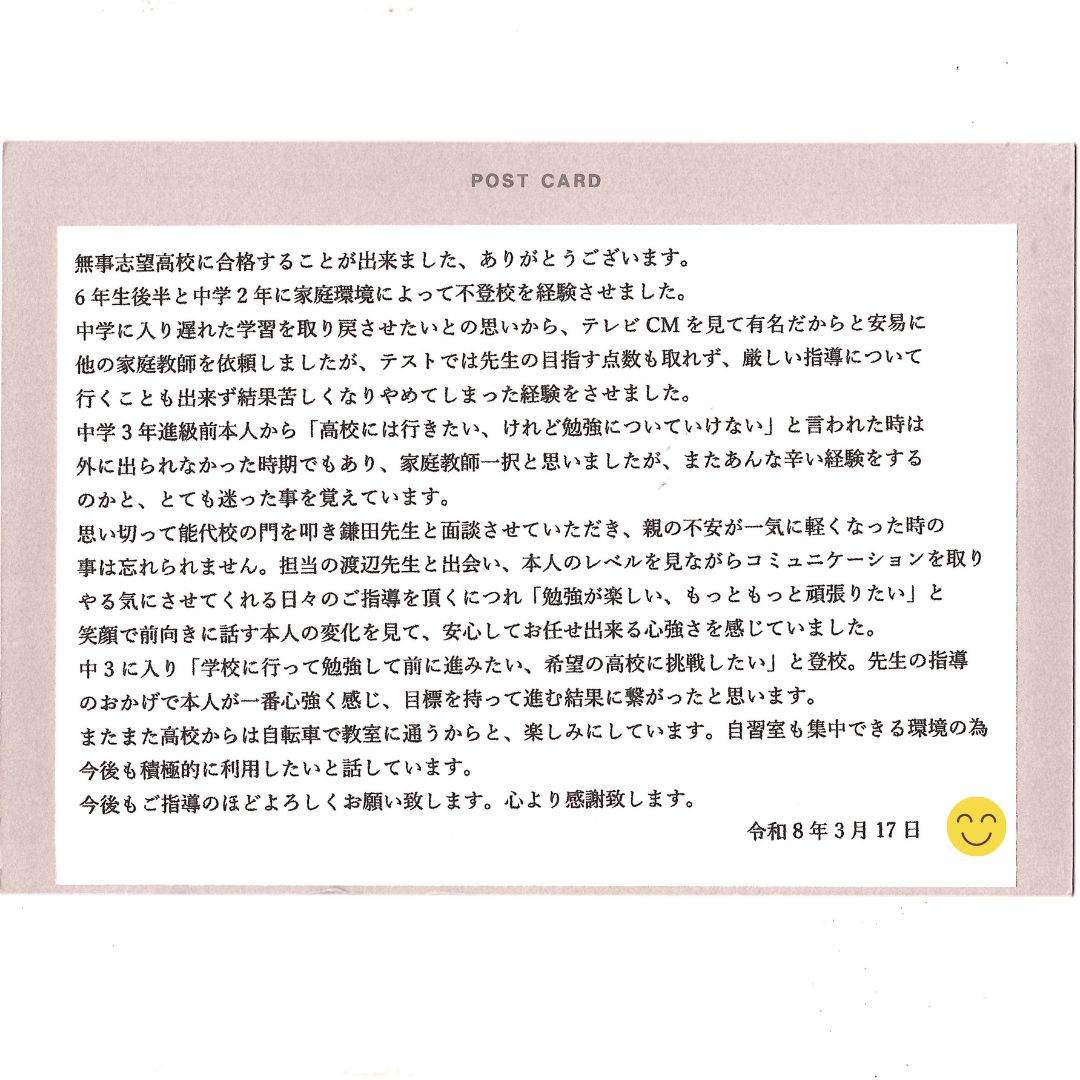 POST CARD
無事志望高校に合格することが出来ました、ありがとうございます。
6年生後半と中学2年に家庭環境によって不登校を経験させました。
中学に入り遅れた学習を取り戻させたいとの思いから、テレビCMを見て有名だからと安易に
他の家庭教師を依頼しましたが、テストでは先生の目指す点数も取れず、厳しい指導について
行くことも出来ず結果苦しくなりやめてしまった経験をさせました。
中学3年進級前本人から「高校には行きたい、けれど勉強についていけない」と言われた時は
外に出られなかった時期でもあり、家庭教師一択と思いましたが、またあんな辛い経験をする
のかと、とても迷った事を覚えています。
思い切って能代校の門を叩き鎌田先生と面談させていただき、親の不安が一気に軽くなった時の
事は忘れられません。担当の渡辺先生と出会い、本人のレベルを見ながらコミュニケーションを取り
やる気にさせてくれる日々のご指導を頂くにつれ「勉強が楽しい、もっともっと頑張りたい」と
笑顔で前向きに話す本人の変化を見て、安心してお任せ出来る心強さを感じていました。
中3に入り「学校に行って勉強して前に進みたい、希望の高校に挑戦したい」と登校。先生の指導
のおかげで本人が一番心強く感じ、目標を持って進む結果に繋がったと思います。
またまた高校からは自転車で教室に通うからと、楽しみにしています。自習室も集中できる環境の為
今後も積極的に利用したいと話しています。
今後もご指導のほどよろしくお願い致します。心より感謝致します。
令和8年3月17日